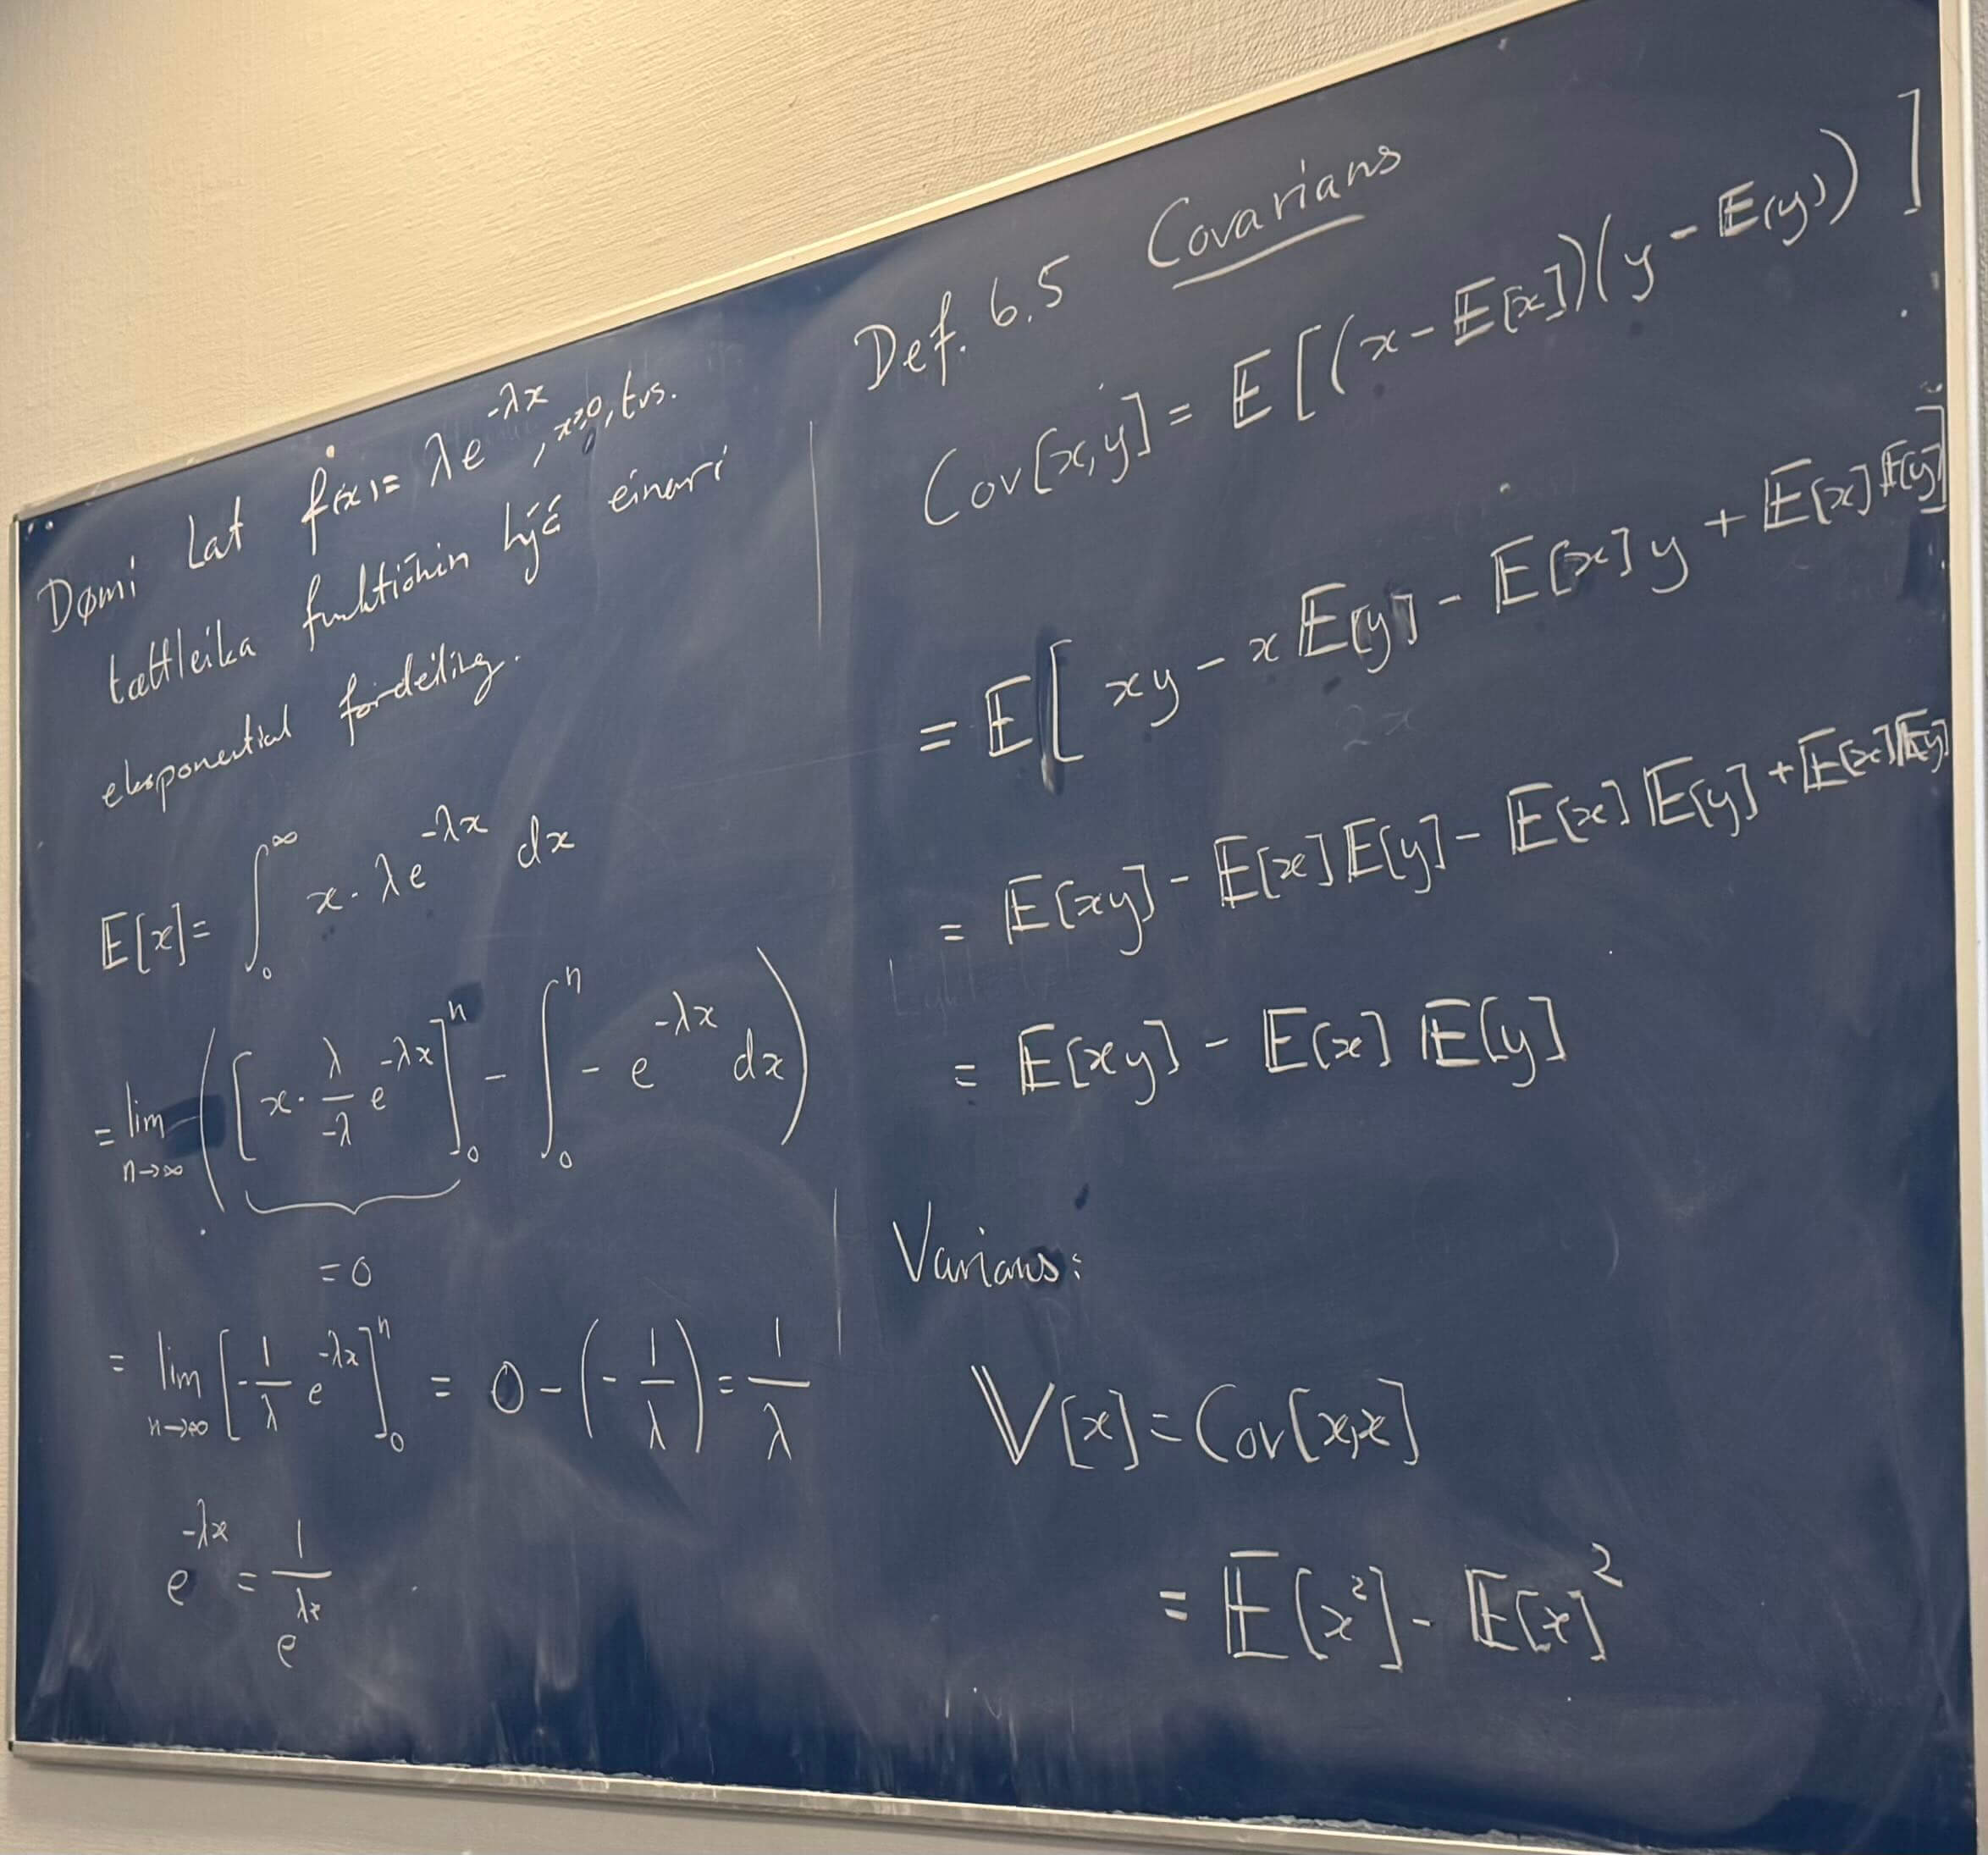 Dømi Lat f(x) = λe^{-λx}, x≥0, tvs.
tættleika funktiónin hjá einari
eksponential fordeiling.
E[x] = ∫_0^∞ x · λe^{-λx} dx
= lim_{n→∞} ( [x · λ/-λ e^{-λx}]_0^n - ∫_0^n - e^{-λx} dx )
= 0
= lim_{n→∞} [-1/λ e^{-λx}]_0^n = 0 - (-1/λ) = 1/λ
e^{-λx} = 1/e^{λx}
Def. 6.5 Covarians
Cov[x,y] = E[(x - E[x])(y - E(y))]
= E[xy - x E[y] - E[x]y + E[x]E[y]]
= E[xy] - E[x]E[y] - E[x]E[y] + E[x]E[y]
= E[xy] - E[x] E[y]
Varians:
V[x] = Cov[x,x]
= E[x²] - E[x]²